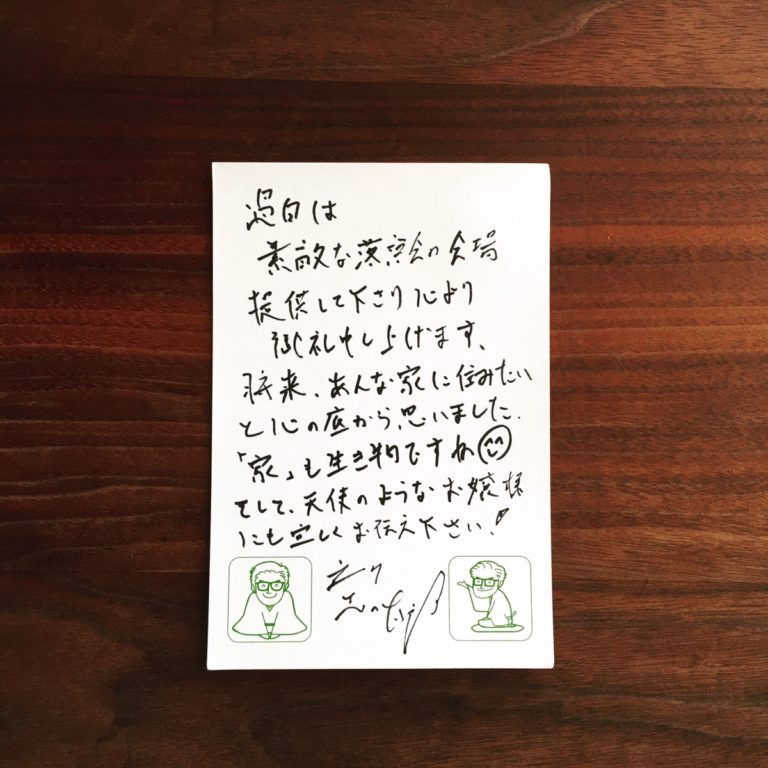 過日は
素敵な落語会の会場
提供して下さり心より
御礼申し上げます、
将来、あんな家に住みたい
と心の底から、思いました.
「家」も生き物ですね
そして、天使のようなお嬢様
にも宜しくお伝え下さい!
立川
志の太郎